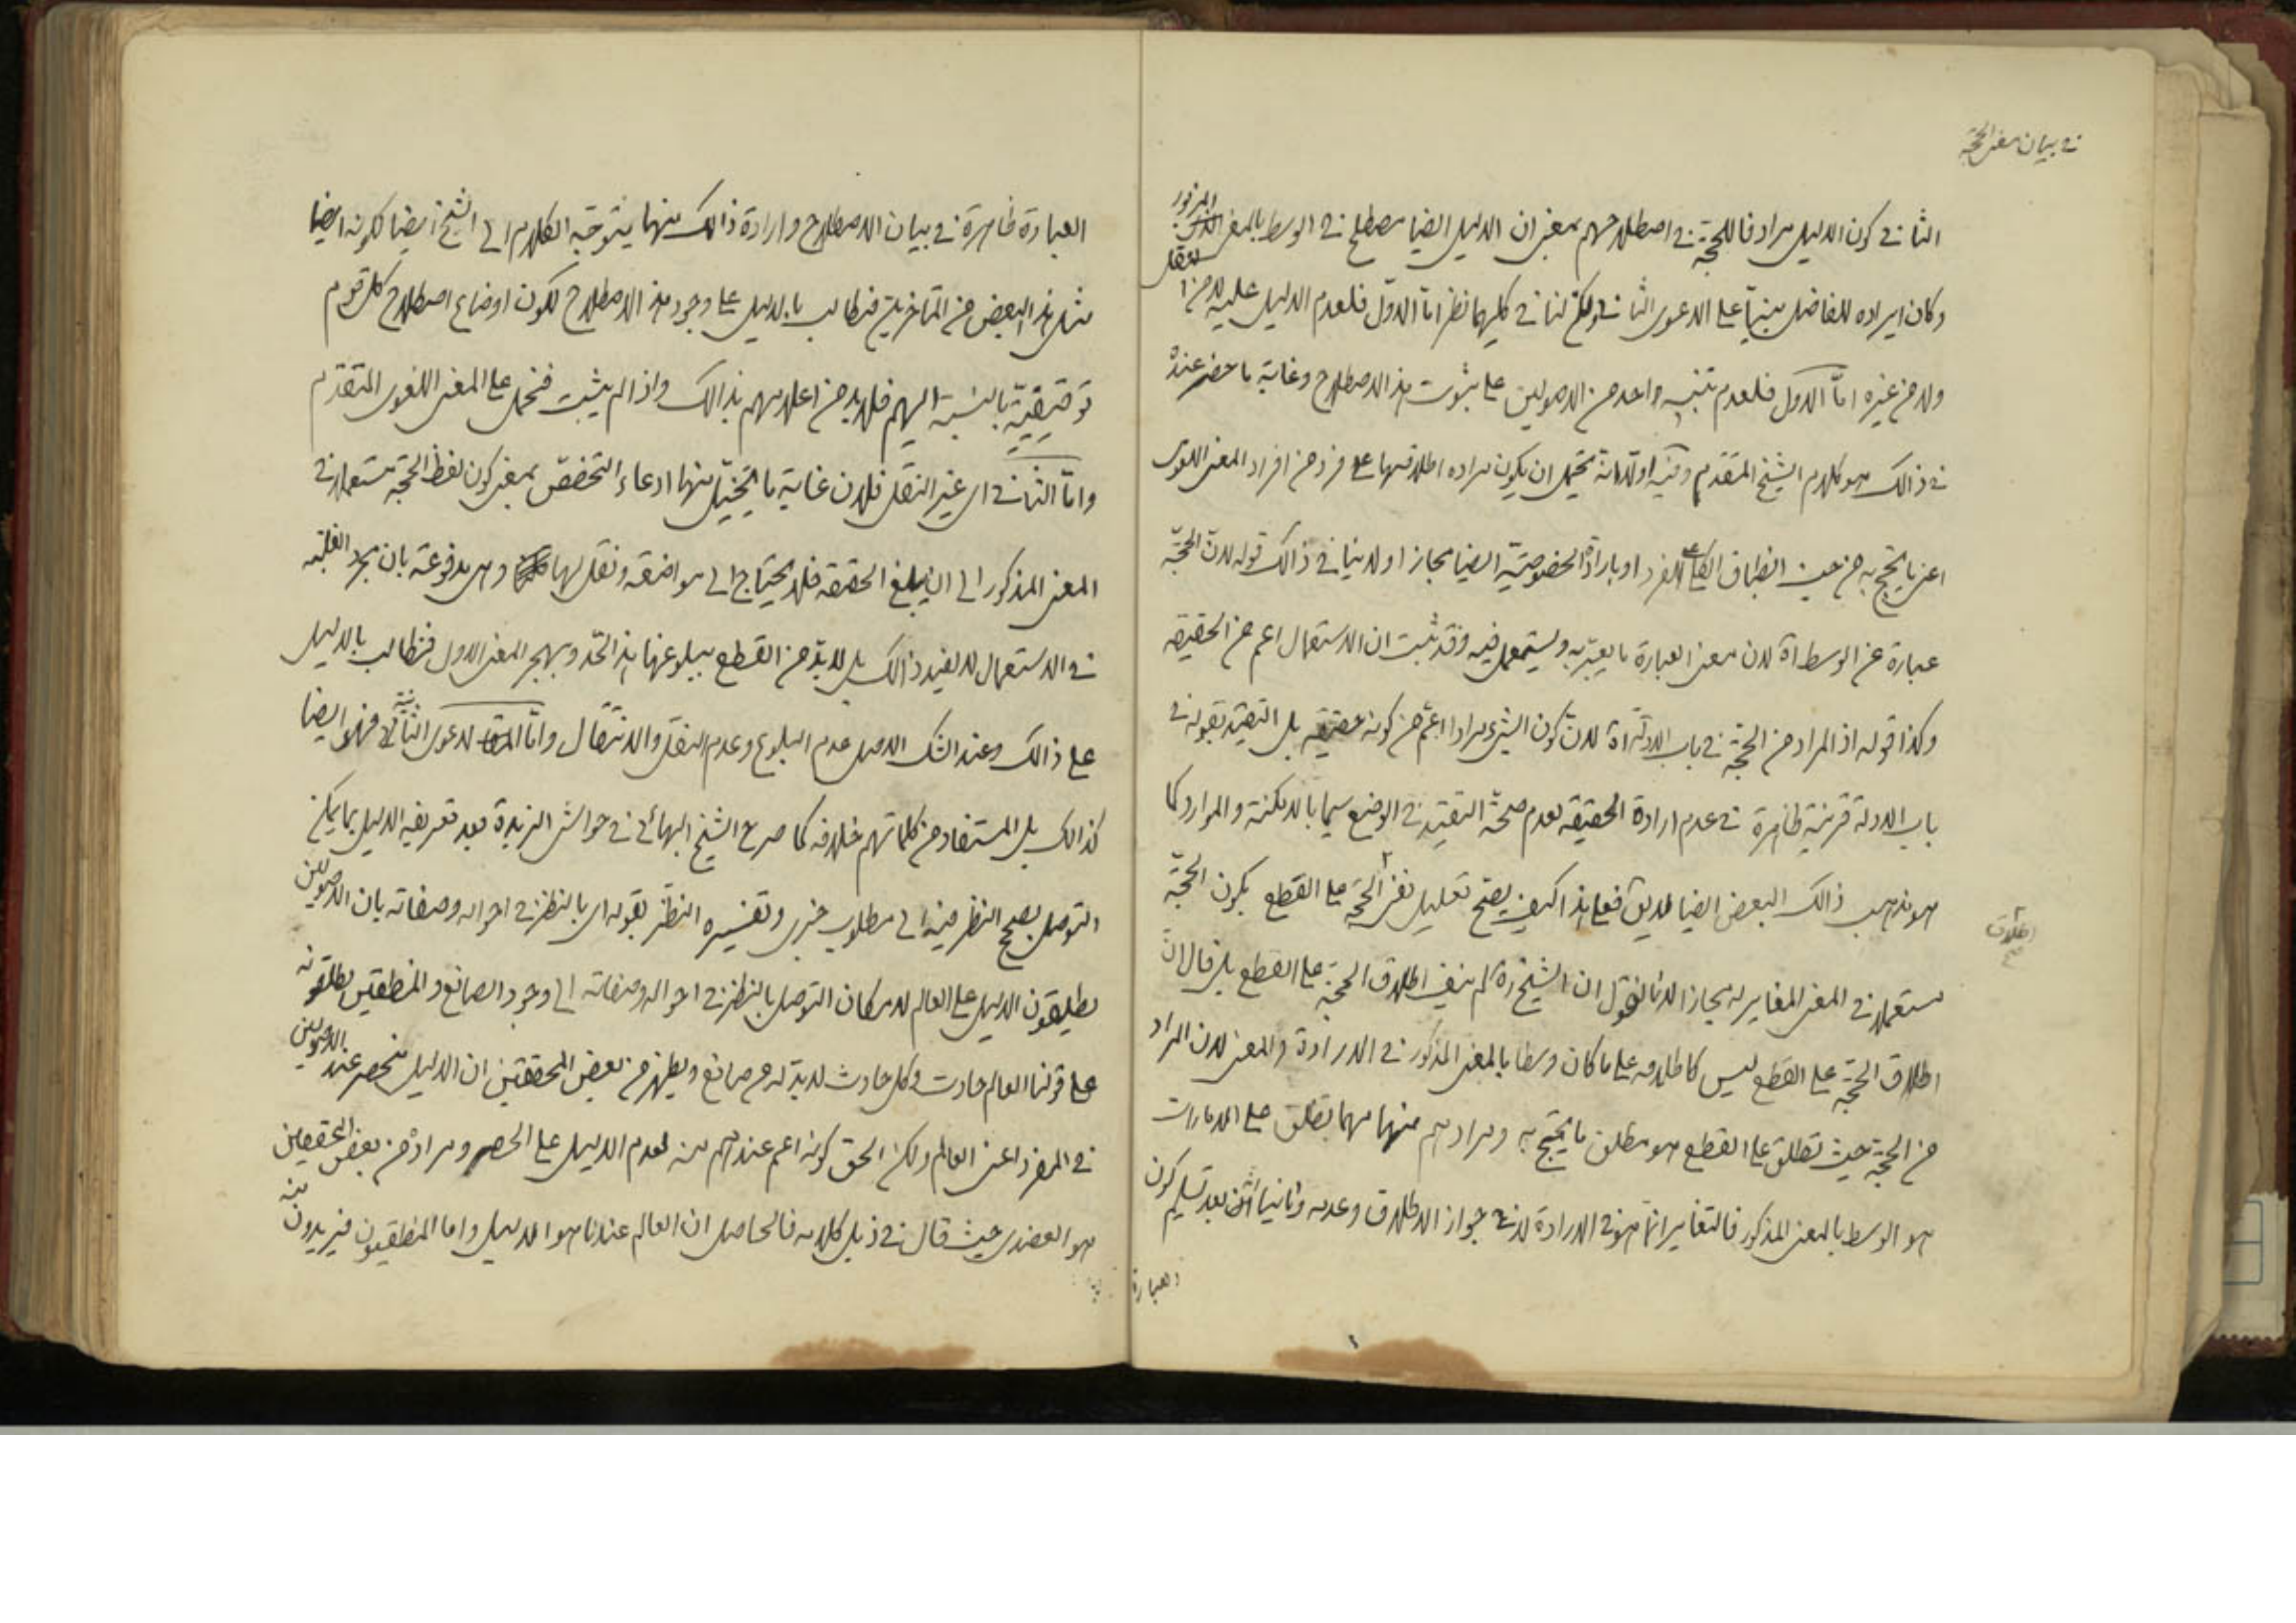 في بيان معنى الحجة
الثاني كون الدليل مرادفا للحجة في اصطلاحهم بمعنى ان الدليل ايضا مصطلح في الوسط بالمعنى المزبور
وكان ايراده للفاضل مبنيا على الدعوى الثاني ولكن لنا في كليهما نظر اما الاول فلعدم الدليل عليه لا من العقل
ولا من غيره اما الاول فلعدم تنبيه واحد من الاصوليين على ثبوت هذا الاصطلاح وغاية ما حضر عنده
في ذالك هو كلام الشيخ المتقدم وفيه اولا انه يحتمل ان يكون مراده اطلاقها على فرد من افراد المعنى اللغوى
اعنى ما يحتج به من حيث انطباق الكلى على الفرد او بارادة الخصوصية ايضا مجازا ولا ينافى ذالك قوله لان الحجة
عبارة عن الوسط اه لان معنى العبارة ما يعبر به ويستعمل فيه وقد ثبت ان الاستعمال اعم من الحقيقه
وكذا قوله اذ المراد من الحجة في باب الادلة اه لان كون الشيء مرادا اعم من كونه حقيقه بل التقييد بقوله في
باب الادلة قرينة ظاهرة في عدم ارادة الحقيقه لعدم صحة التقييد في الوضع سيما بالامكنة والموارد كما
هو مذهب ذالك البعض ايضا لا يق فعلى هذا كيف يصح تعليل نفى الحجة على القطع بكون الحجة
اطلاق صح
مستعملا في المعنى المغاير له مجازا لانا نقول ان الشيخ ره لم ينف اطلاق الحجة على القطع بل قال ان
اطلاق الحجة على القطع ليس كاطلاقه على ما كان وسطا بالمعنى المذكور في الارادة والمعنى لان المراد
من الحجة حيث تطلق على القطع هو مطلق ما يحتج به ومرادهم منها مهما تطلق على الامارات
هو الوسط بالمعنى المذكور فالتغاير انما هو في الارادة لا في جواز الاطلاق وعدمه وثانيا بعد تسليم كون
العبارة
العبارة ظاهرة في بيان الاصطلاح وارادة ذالك منها يتوجه الكلام الى الشيخ ايضا لكونه ايضا
مثل هذا البعض من المتأخرين فنطالب بالدليل على وجود هذا الاصطلاح لكون اوضاع اصطلاح كل قوم
توقيفية بالنسبة اليهم فلابد من اعلامهم بذالك واذا لم يثبت فنحمل على المعنى اللغوى المتقدم
واما الثاني اى غير النقل فلان غاية ما يتخيل منها ادعاء التخصص بمعنى كون لفظ الحجة مستعملا في
المعنى المذكور الى ان يبلغ الحقيقه فلا يحتاج الى مواضعه ونقل لها وهى مدفوعة بان مجرد الغلبه
في الاستعمال لا يفيد ذالك بل لابد من القطع ببلوغها هذا الحد وبهجر المعنى الاول فنطالب بالدليل
على ذالك وعند الشك الاصل عدم البلوغ وعدم النقل والانتقال واما الدعوى الثانية فهو ايضا
كذالك بل المستفاد من كلماتهم خلافه كما صرح الشيخ البهائى في حواشى الزبدة بعد تعريفه الدليل بما يمكن
التوصل بصحيح النظر فيه الى مطلوب خبرى وتفسيره النظر بقوله اى بالنظر في احواله وصفاته بان الاصوليين
يطلقون الدليل على العالم لامكان التوصل بالنظر في احواله وصفاته الى وجود الصانع والمنطقيين يطلقونه
على قولنا العالم حادث وكل حادث لابد له من صانع ويظهر من بعض المحققين ان الدليل منحصر عند الاصوليين
في المفرد اعنى العالم ولكن الحق كونه اعم عندهم منه لعدم الدليل على الحصر ومراده من بعض المحققين
هو العضدى حيث قال في ذيل كلامه فالحاصل ان العالم عندنا هو الدليل واما المنطقيون فيريدون منه